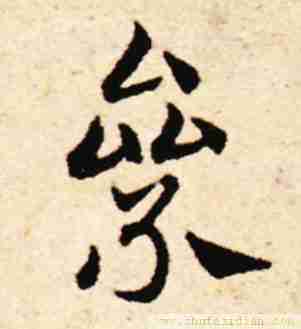 參
www.shufazidian.com